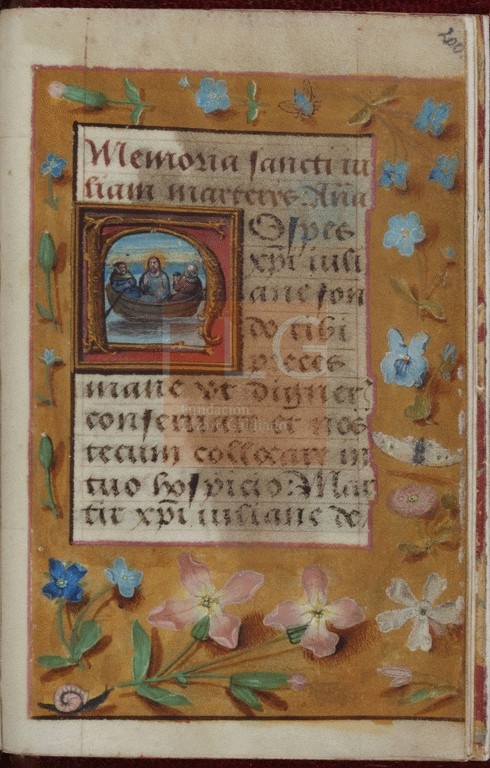 200.
Memoria sancti iu
liani marteris Aña
HOspes
xp̄i iuli
ane fon
do tibi
preces
mane vt digner
et nos
tecum collocari in
tuo hospicio. Mar
tir xp̄i iuliane de
Fundación
Lázaro Galdiano